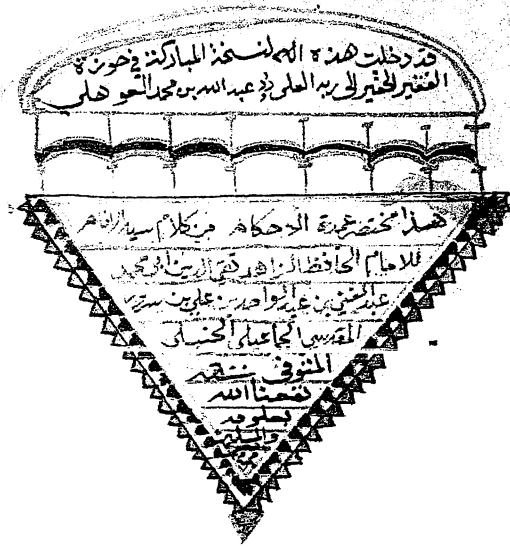 قد دخلت هذه النسخة المباركة في حوزة
الفقير الحقير الى ربه العلي عبد الله بن محمد العوهلي
هذا مختصر عمدة الاحكام من كلام سيد الانام
للامام الحافظ الزاهد تقي الدين ابي محمد
عبد الغني بن عبد الواحد بن علي بن سرور
المقدسي الجماعيلي الحنبلي
المتوفى سنة
نفعنا الله
بعلومه
والمسلمين